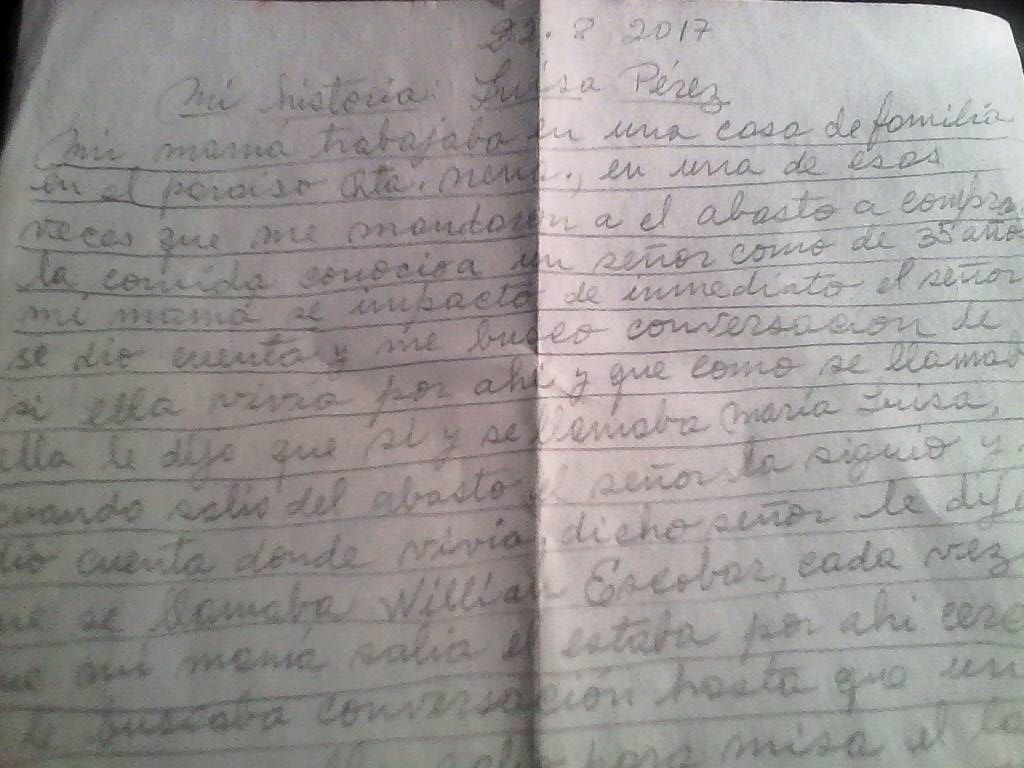 22.8 2017
Mi historia: Luisa Pérez
Mi mamá trabajaba en una casa de familia
en el paraiso Qta. Nena., en una de esas
veces que me mandaron a el abasto a compra
la comida conocio a un señor como de 35 año
mi mamá se impacto de inmediato el señor
se dio cuenta y me busco conversacion de
si ella vivía por ahi y que como se llamab
ella le dijo que si y se llamaba María Luisa,
cuando salio del abasto el señor la siguio y
dio cuenta donde vivia, dicho señor le dij
ue se llamaba Willian Escobar, cada vez
ue mi mamá salia el estaba por ahi cerc
le buscaba conversación hasta que un
salio para misa el la